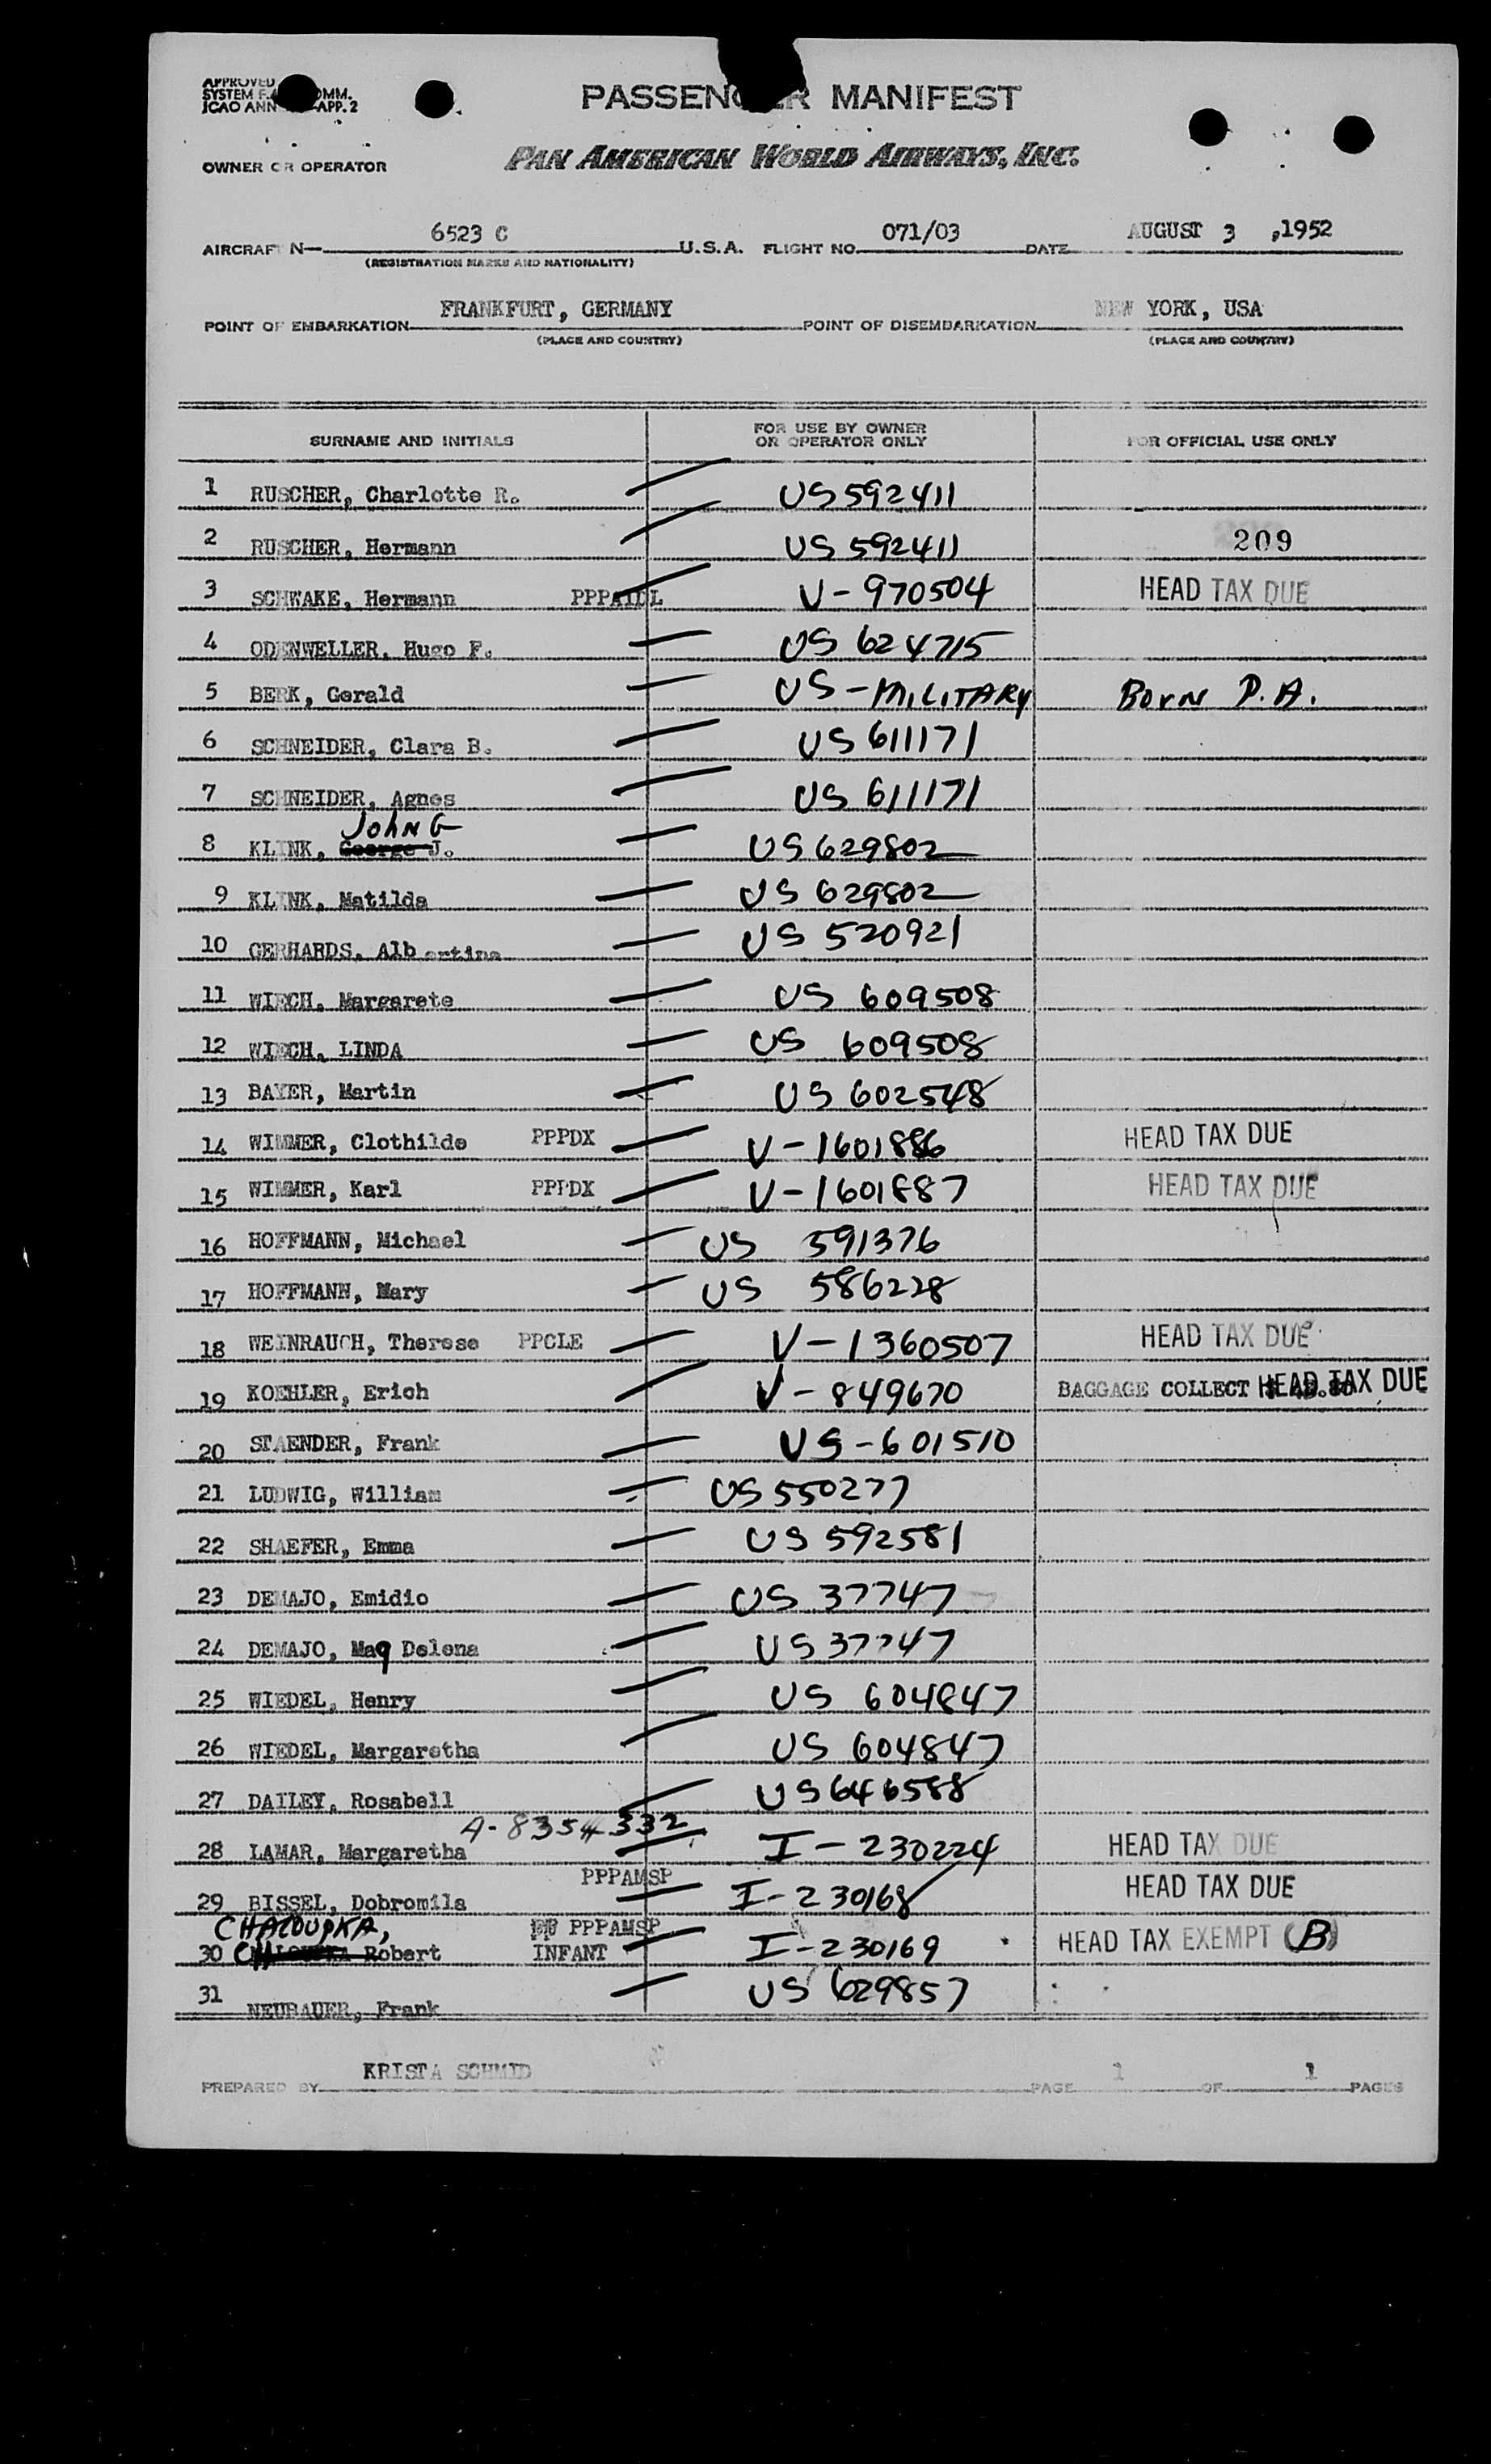 APPROVED
SYSTEM F. OMM.
ICAO ANN APP. 2
PASSENGER MANIFEST
OWNER OR OPERATOR PAN AMERICAN WORLD AIRWAYS, INC.
AIRCRAFT N— 6523 C U.S.A. FLIGHT NO. 071/03 DATE AUGUST 3 ,1952
(REGISTRATION MARKS AND NATIONALITY)
POINT OF EMBARKATION FRANKFURT, GERMANY POINT OF DISEMBARKATION NEW YORK, USA
(PLACE AND COUNTRY) (PLACE AND COUNTRY)
SURNAME AND INITIALS FOR USE BY OWNER OR OPERATOR ONLY FOR OFFICIAL USE ONLY
1 RUSCHER, Charlotte R. US 592411
2 RUSCHER, Hermann US 592411 209
3 SCHWAKE, Hermann PPPAIDL V-970504 HEAD TAX DUE
4 ODENWELLER, Hugo F. US 624715
5 BERK, Gerald US-MILITARY Born P.A.
6 SCHNEIDER, Clara B. US 611171
7 SCHNEIDER, Agnes US 611171
John G
8 KLINK, George J. US 629802
9 KLINK, Matilda US 629802
10 GERHARDS, Albertina US 520921
11 WIECH, Margarete US 609508
12 WIECH, LINDA US 609508
13 BAYER, Martin US 602548
14 WIMMER, Clothilde PPPDX V-1601886 HEAD TAX DUE
15 WIMMER, Karl PPPDX V-1601887 HEAD TAX DUE
16 HOFFMANN, Michael US 591376
17 HOFFMANN, Mary US 586228
18 WEINRAUCH, Therese PPCLE V-1360507 HEAD TAX DUE
19 KOEHLER, Erich V-849670 BAGGAGE COLLECT HEAD TAX DUE
20 STAENDER, Frank US-601510
21 LUDWIG, William US 550277
22 SHAEFER, Emma US 592581
23 DEMAJO, Emidio US 37747
24 DEMAJO, Mag Delena US 37747
25 WIEDEL, Henry US 604847
26 WIEDEL, Margaretha US 604847
27 DAILEY, Rosabell US 646588
A-8354332
28 LAMAR, Margaretha I-230224 HEAD TAX DUE
29 BISSEL, Dobromila PPPAMSP I-230168 HEAD TAX DUE
CHALOUPKA, PPPAMSP
30 Robert INFANT I-230169 HEAD TAX EXEMPT (B)
31 NEUBAUER, Frank US 629857
PREPARED BY KRISTA SCHMID PAGE 1 OF 1 PAGES